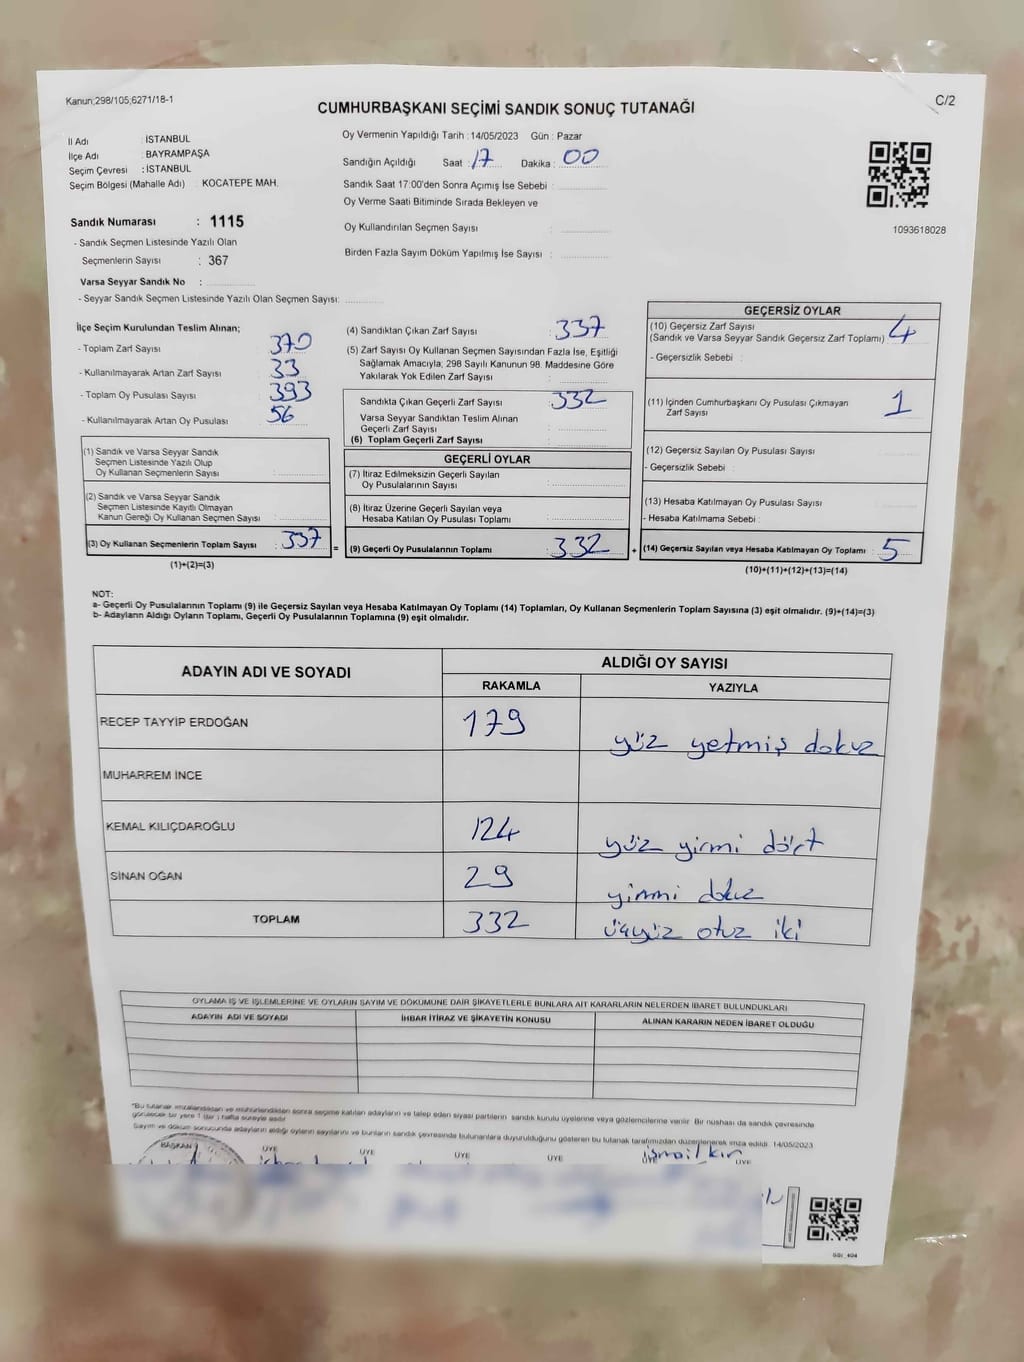 Kanun;298/105;6271/18-1
C/2
CUMHURBAŞKANI SEÇİMİ SANDIK SONUÇ TUTANAĞI
İl Adı : İSTANBUL
İlçe Adı : BAYRAMPAŞA
Seçim Çevresi : İSTANBUL
Seçim Bölgesi (Mahalle Adı) : KOCATEPE MAH.
Oy Vermenin Yapıldığı Tarih : 14/05/2023 Gün : Pazar
Sandığın Açıldığı Saat : 17 Dakika : 00
Sandık Saat 17:00'den Sonra Açımış İse Sebebi :
Oy Verme Saati Bitiminde Sırada Bekleyen ve
Oy Kullandırılan Seçmen Sayısı :
Birden Fazla Sayım Döküm Yapılmış İse Sayısı :
1093618028
Sandık Numarası : 1115
- Sandık Seçmen Listesinde Yazılı Olan
Seçmenlerin Sayısı : 367
Varsa Seyyar Sandık No :
- Seyyar Sandık Seçmen Listesinde Yazılı Olan Seçmen Sayısı:
İlçe Seçim Kurulundan Teslim Alınan;
- Toplam Zarf Sayısı : 370
- Kullanılmayarak Artan Zarf Sayısı : 33
- Toplam Oy Pusulası Sayısı : 393
- Kullanılmayarak Artan Oy Pusulası : 56
(1) Sandık ve Varsa Seyyar Sandık
Seçmen Listesinde Yazılı Olup
Oy Kullanan Seçmenlerin Sayısı :
(2) Sandık ve Varsa Seyyar Sandık
Seçmen Listesinde Kayıtlı Olmayan
Kanun Gereği Oy Kullanan Seçmen Sayısı :
(3) Oy Kullanan Seçmenlerin Toplam Sayısı : 337
(1)+(2)=(3)
(4) Sandıktan Çıkan Zarf Sayısı : 337
(5) Zarf Sayısı Oy Kullanan Seçmen Sayısından Fazla İse, Eşitliği
Sağlamak Amacıyla; 298 Sayılı Kanunun 98. Maddesine Göre
Yakılarak Yok Edilen Zarf Sayısı :
Sandıkta Çıkan Geçerli Zarf Sayısı : 332
Varsa Seyyar Sandıktan Teslim Alınan
Geçerli Zarf Sayısı :
(6) Toplam Geçerli Zarf Sayısı :
GEÇERLİ OYLAR
(7) İtiraz Edilmeksizin Geçerli Sayılan
Oy Pusulalarının Sayısı :
(8) İtiraz Üzerine Geçerli Sayılan veya
Hesaba Katılan Oy Pusulası Toplamı :
= (9) Geçerli Oy Pusulalarının Toplamı : 332
GEÇERSİZ OYLAR
(10) Geçersiz Zarf Sayısı : 4
(Sandık ve Varsa Seyyar Sandık Geçersiz Zarf Toplamı)
- Geçersizlik Sebebi :
(11) İçinden Cumhurbaşkanı Oy Pusulası Çıkmayan
Zarf Sayısı : 1
(12) Geçersiz Sayılan Oy Pusulası Sayısı :
- Geçersizlik Sebebi :
(13) Hesaba Katılmayan Oy Pusulası Sayısı
- Hesaba Katılmama Sebebi :
+ (14) Geçersiz Sayılan veya Hesaba Katılmayan Oy Toplamı : 5
(10)+(11)+(12)+(13)=(14)
NOT:
a- Geçerli Oy Pusulalarının Toplamı (9) ile Geçersiz Sayılan veya Hesaba Katılmayan Oy Toplamı (14) Toplamları, Oy Kullanan Seçmenlerin Toplam Sayısına (3) eşit olmalıdır. (9)+(14)=(3)
b- Adayların Aldığı Oyların Toplamı, Geçerli Oy Pusulalarının Toplamına (9) eşit olmalıdır.
ADAYIN ADI VE SOYADI ALDIĞI OY SAYISI
RAKAMLA YAZIYLA
RECEP TAYYİP ERDOĞAN 179 yüz yetmiş dokuz
MUHARREM İNCE
KEMAL KILIÇDAROĞLU 124 yüz yirmi dört
SİNAN OĞAN 29 yirmi dokuz
TOPLAM 332 üçyüz otuz iki
OYLAMA İŞ VE İŞLEMLERİNE VE OYLARIN SAYIM VE DÖKÜMÜNE DAİR ŞİKAYETLERLE BUNLARA AİT KARARLARIN NELERDEN İBARET BULUNDUKLARI
ADAYIN ADI VE SOYADI İHBAR İTİRAZ VE ŞİKAYETİN KONUSU ALINAN KARARIN NEDEN İBARET OLDUĞU
*Bu tutanak imzalandıktan ve mühürlendikten sonra seçime katılan adayların ve talep eden siyasi partilerin sandık kurulu üyelerine veya gözlemcilerine verilir. Bir nüshası da sandık çevresinde
görülecek bir yere 1 (bir) hafta süreyle asılır.
Sayım ve döküm sonucunda adayların aldığı oyların sayılarını ve bunların sandık çevresinde bulunanlara duyurulduğunu gösteren bu tutanak tarafımızdan düzenlenerek imza edildi. 14/05/2023
BAŞKAN ÜYE ÜYE ÜYE ÜYE ÜYE ÜYE